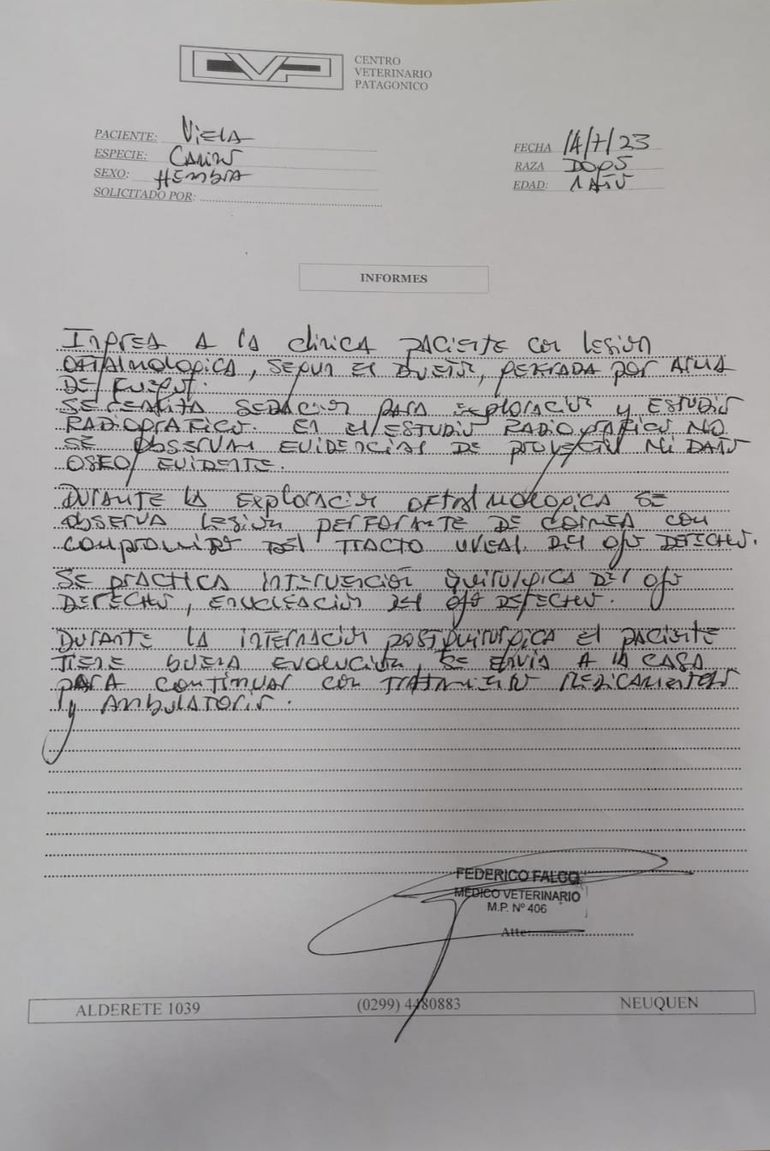 CVP
CENTRO
VETERINARIO
PATAGONICO
PACIENTE:
ESPECIE: CANINO
SEXO: HEMBRA
SOLICITADO POR:
FECHA 14/7/23
RAZA DOGO
EDAD: 1 AÑO
INFORMES
INGRESA A LA CLINICA PACIENTE CON LESION
OFTALMOLOGICA, SEGUN EL DUEÑO, POR ARMA
DE FUEGO.
SE REALIZA SEDACION PARA EXPLORACION Y ESTUDIO
RADIOGRAFICO. EN EL ESTUDIO RADIOGRAFICO NO
SE OBSERVAN EVIDENCIAS DE PROYECTIL NI DAÑO
OSEO EVIDENTE.
DURANTE LA EXPLORACION OFTALMOLOGICA SE
OBSERVA LESION PERFORANTE DE CORNEA CON
COMPROMISO DEL TRACTO UVEAL DEL OJO DERECHO.
SE PRACTICA INTERVENCION QUIRURGICA DEL OJO
DERECHO, ENUCLEACION DEL OJO DERECHO.
DURANTE LA INTERNACION POSTQUIRURGICA EL PACIENTE
TIENE BUENA EVOLUCION, SE ENVIA A LA CASA
PARA CONTINUAR CON TRATAMIENTO MEDICAMENTOSO
Y AMBULATORIO.
FEDERICO FALCO
MEDICO VETERINARIO
M.P. Nº 406
Atte
ALDERETE 1039 (0299) 4480883 NEUQUEN